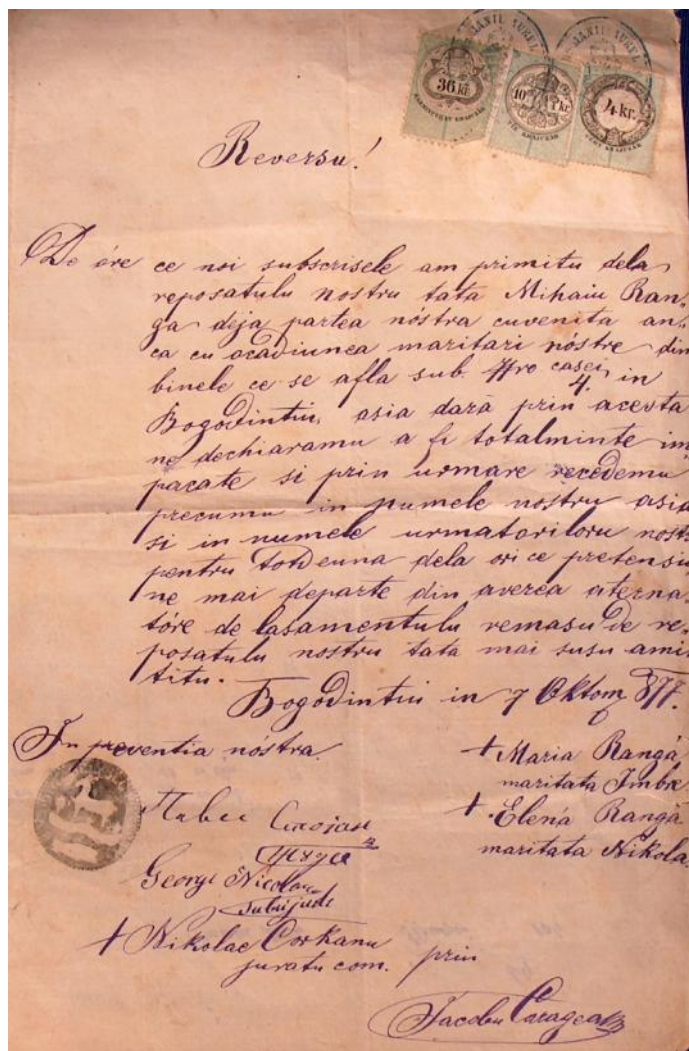 36 kr.
10 kr.
4 kr.
Reversu!
De óre ce noi subscrisele am primitu dela
reposatulu nostru tata Mihaiu Ran-
ga deja partea nóstra cuvenita an-
ca cu ocasiunea maritari nóstre din
binele ce se afla sub Nro casei 4. in
Bogodintiu, asia dară prin acesta
ne dechiaramu a fi totalminte im
pacate si prin urmare recedemu
precumu in numele nostru asia
si in numele urmatoriloru nost
pentru totdeuna dela ori ce pretensiu
ne mai departe din averea aterna-
tóre de lasamentulu remasu de re-
posatulu nostru tata mai susu ami
titu.
Bogodintiu in 7 Oktom 877.
In presentia nóstra.
+ Maria Rangă
maritata Imbre
+ Elena Rangă
maritata Nikola
Павел
George Nicolae
subjude
+ Nikolae Corkanu
juratu com.
prin
Jacobu Caragea